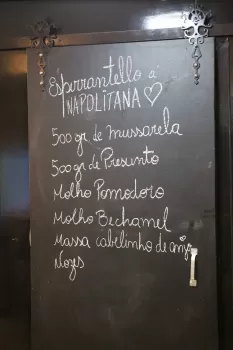 Esperrantello á
NAPOLITANA
500 gr. de mussarela
500 gr de Presunto
Molho Pomodoro
Molho Bechamel
Massa cabelinho de anjo
Nozes